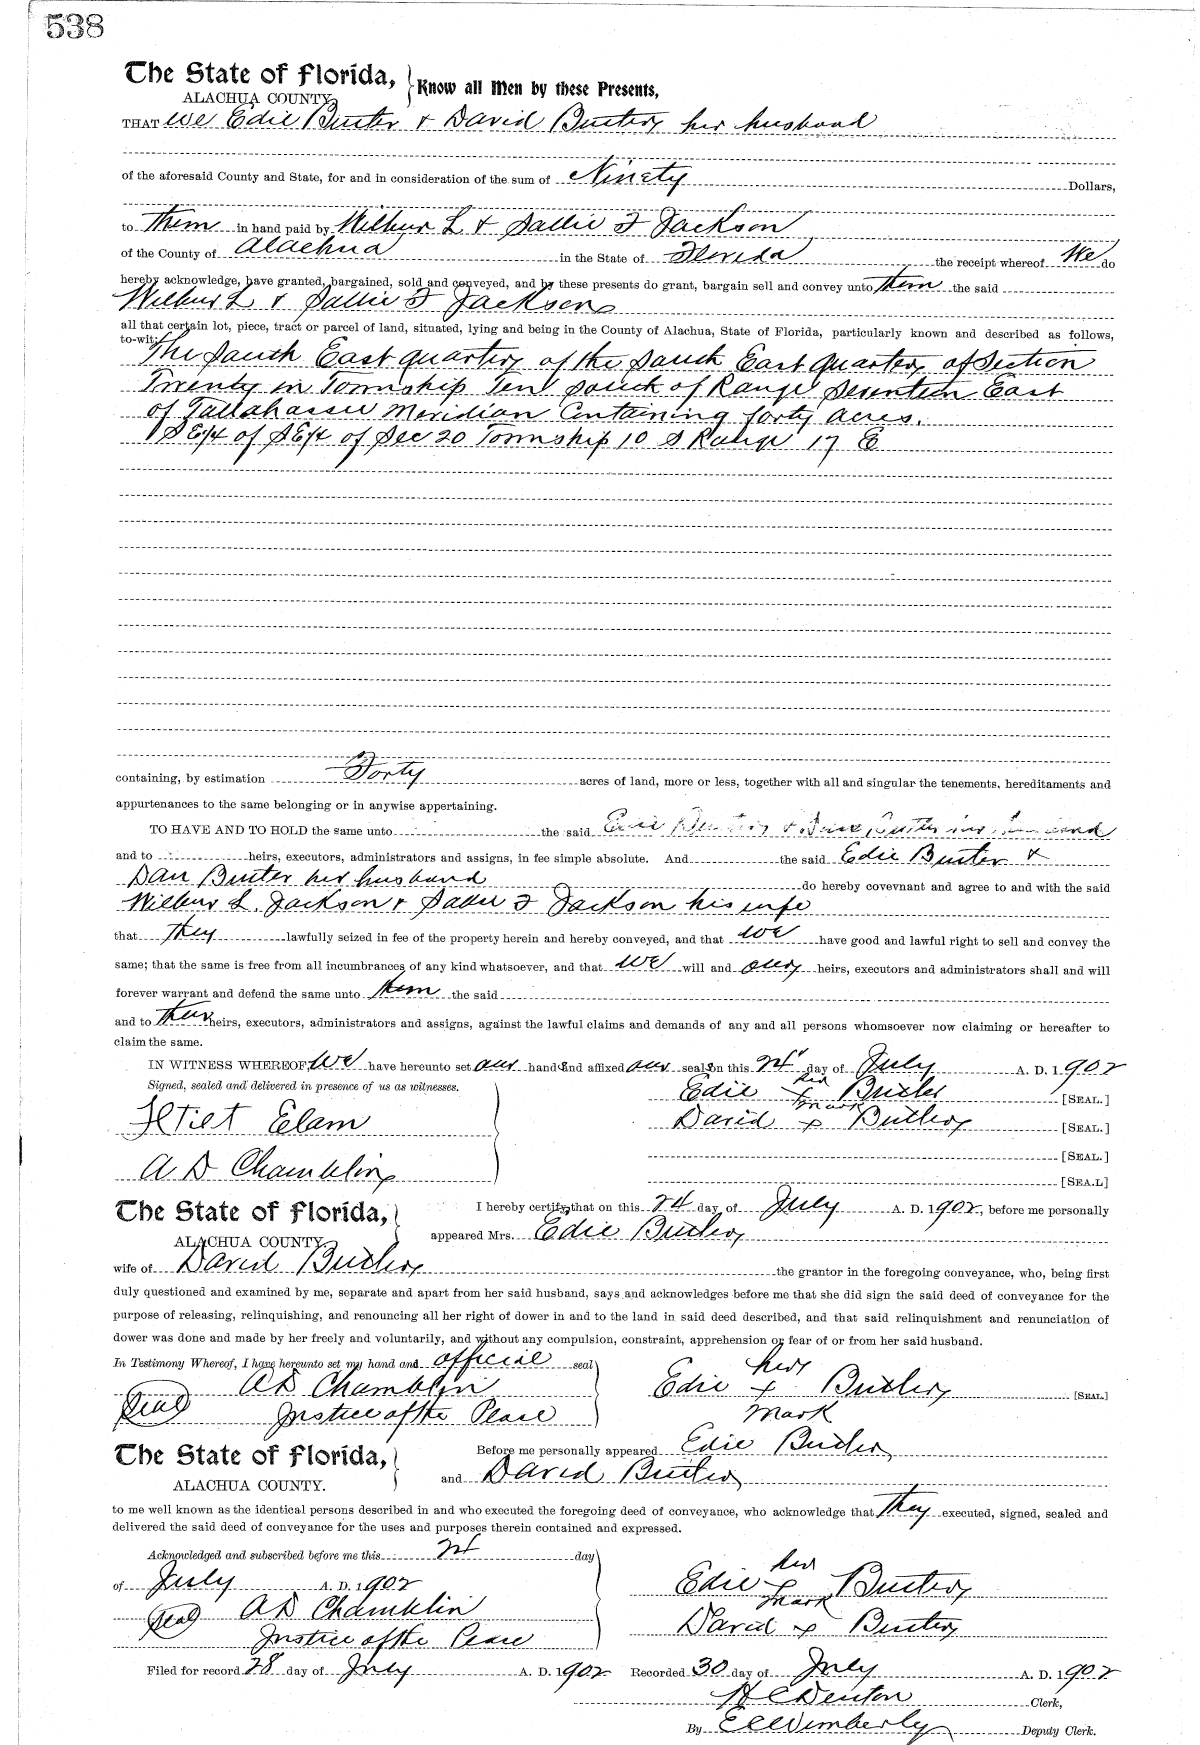 538
The State of Florida, Know all Men by these Presents,
ALACHUA COUNTY.
THAT we Edie Butler & David Butler her husband
of the aforesaid County and State, for and in consideration of the sum of Ninety Dollars,
to them in hand paid by Wilbur L & Sallie F Jackson
of the County of Alachua in the State of Florida the receipt whereof We do
hereby acknowledge, have granted, bargained, sold and conveyed, and by these presents do grant, bargain sell and convey unto them the said
Wilbur L & Sallie F Jackson
all that certain lot, piece, tract or parcel of land, situated, lying and being in the County of Alachua, State of Florida, particularly known and described as follows,
to-wit:
The South East quarter of the South East quarter of Section
Twenty in Township Ten south of Range Seventeen East
of Tallahassee Meridian Containing forty acres.
SE/4 of SE/4 of Sec 20 Township 10 S Range 17 E
containing, by estimation Forty acres of land, more or less, together with all and singular the tenements, hereditaments and
appurtenances to the same belonging or in anywise appertaining.
TO HAVE AND TO HOLD the same unto the said Edie Butler &
and to heirs, executors, administrators and assigns, in fee simple absolute. And the said Edie Butler &
Dan Butler her husband do hereby covevnant and agree to and with the said
Wilbur L. Jackson & Sallie F Jackson his wife
that they lawfully seized in fee of the property herein and hereby conveyed, and that we have good and lawful right to sell and convey the
same; that the same is free from all incumbrances of any kind whatsoever, and that we will and our heirs, executors and administrators shall and will
forever warrant and defend the same unto them the said
and to their heirs, executors, administrators and assigns, against the lawful claims and demands of any and all persons whomsoever now claiming or hereafter to
claim the same.
IN WITNESS WHEREOF, We have hereunto set our hand and affixed our seal on this 24" day of July A. D. 1902
Signed, sealed and delivered in presence of us as witnesses. Edie her x mark Butler [SEAL.]
Elam David x Butler [SEAL.]
[SEAL.]
A D Chamblin [SEA.L]
The State of Florida, I hereby certify, that on this 24 day of July A. D. 1902, before me personally
ALACHUA COUNTY. appeared Mrs. Edie Butler
wife of David Butler the grantor in the foregoing conveyance, who, being first
duly questioned and examined by me, separate and apart from her said husband, says and acknowledges before me that she did sign the said deed of conveyance for the
purpose of releasing, relinquishing, and renouncing all her right of dower in and to the land in said deed described, and that said relinquishment and renunciation of
dower was done and made by her freely and voluntarily, and without any compulsion, constraint, apprehension or fear of or from her said husband.
In Testimony Whereof, I have hereunto set my hand and official seal her
A D Chamblin Edie x Butler [SEAL.]
Seal Justice of the Peace mark
The State of Florida, Before me personally appeared Edie Butler
ALACHUA COUNTY. and David Butler
to me well known as the identical persons described in and who executed the foregoing deed of conveyance, who acknowledge that they executed, signed, sealed and
delivered the said deed of conveyance for the uses and purposes therein contained and expressed.
Acknowledged and subscribed before me this 24 day her
of July A. D. 1902 Edie x Butler
Seal A D Chamblin mark
Justice of the Peace David x Butler
Filed for record 28 day of July A. D. 1902 Recorded 30 day of July A. D. 1902
H C Denton Clerk,
By E C Wimberly Deputy Clerk.